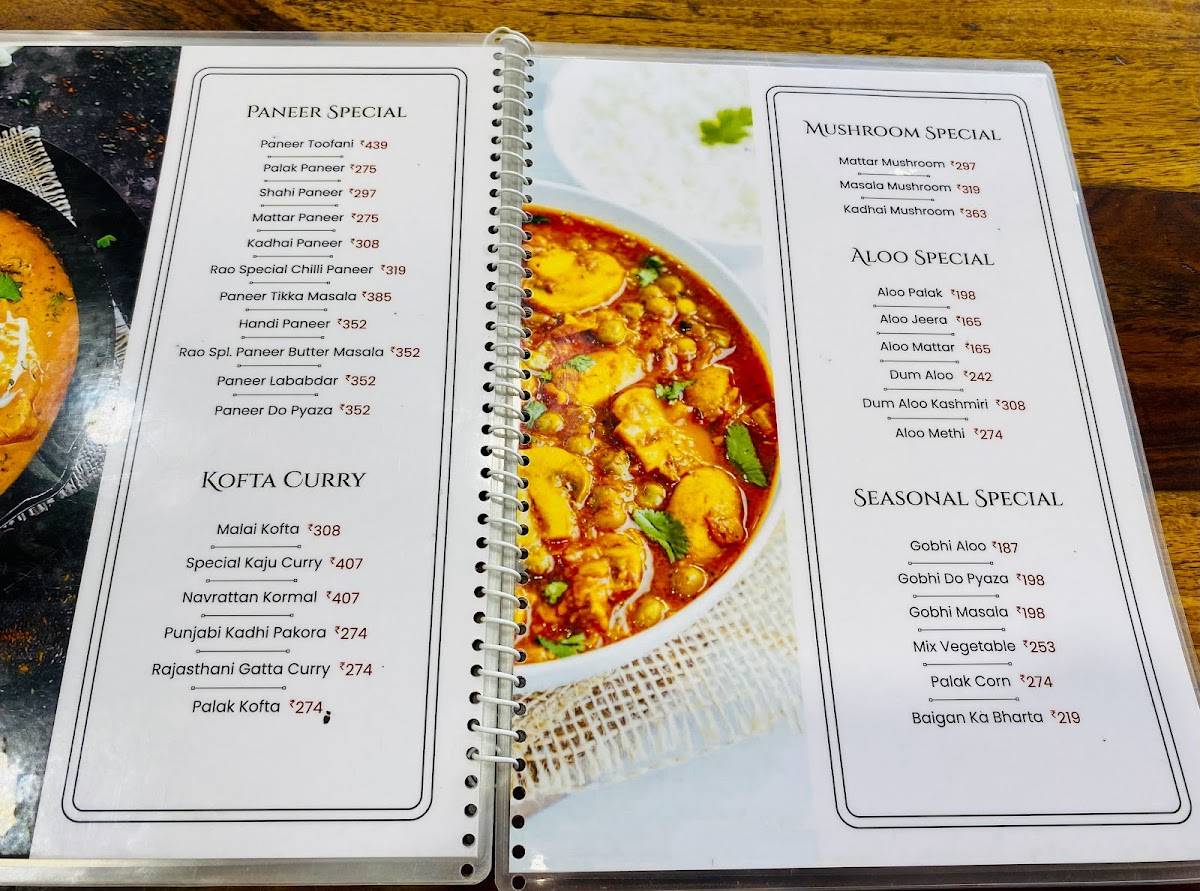 Paneer Special
Paneer Toofani ₹439
Palak Paneer ₹275
Shahi Paneer ₹297
Mattar Paneer ₹275
Kadhai Paneer ₹308
Rao Special Chilli Paneer ₹319
Paneer Tikka Masala ₹385
Handi Paneer ₹352
Rao Spl. Paneer Butter Masala ₹352
Paneer Lababdar ₹352
Paneer Do Pyaza ₹352
Kofta Curry
Malai Kofta ₹308
Special Kaju Curry ₹407
Navrattan Kormal ₹407
Punjabi Kadhi Pakora ₹274
Rajasthani Gatta Curry ₹274
Palak Kofta ₹274
Mushroom Special
Mattar Mushroom ₹297
Masala Mushroom ₹319
Kadhai Mushroom ₹363
Aloo Special
Aloo Palak ₹198
Aloo Jeera ₹165
Aloo Mattar ₹165
Dum Aloo ₹242
Dum Aloo Kashmiri ₹308
Aloo Methi ₹274
Seasonal Special
Gobhi Aloo ₹187
Gobhi Do Pyaza ₹198
Gobhi Masala ₹198
Mix Vegetable ₹253
Palak Corn ₹274
Baigan Ka Bharta ₹219